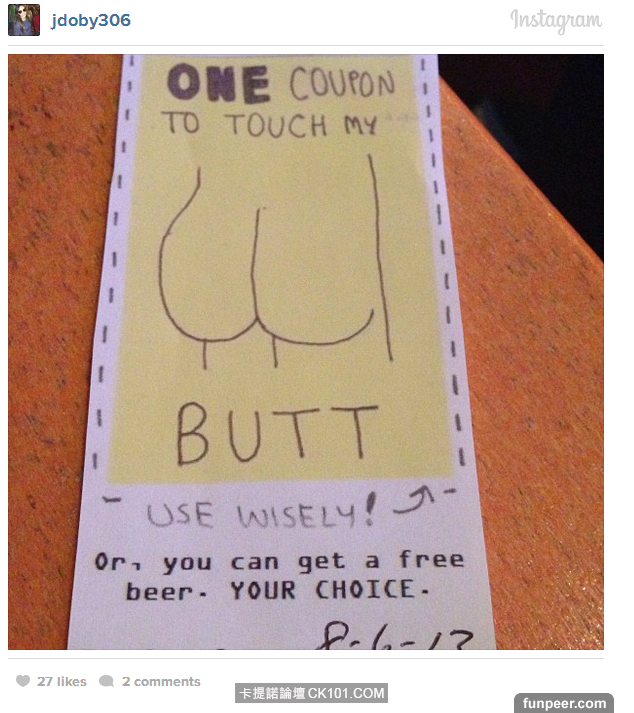 jdoby306
Instagram
ONE COUPON
TO TOUCH MY
BUTT
USE WISELY!
Or, you can get a free
beer. YOUR CHOICE.
8-6-13
27 likes
2 comments
卡提諾論壇CK101.COM
funpeer.com